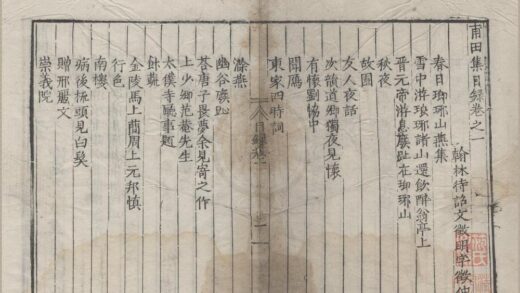 甫田集目錄卷之一
翰林待詔文徵明字徵仲
春日瑯琊山燕集
雪中游琅琊諸山還飲醉翁亭上
晉元帝游息廢趾在瑯琊山
秋夜
故園
友人夜話
次韻道卿獨夜見懷
有懷劉協中
聞鴈
東家四時詞
目錄卷一
滁燕
幽谷廢趾
荅唐子畏夢余見寄之作
上少卿范菴先生
太僕寺聽事題
餘蔬
金陵馬上簡周上元邦慎
行色
南樓
病後梳頭見白髮
贈邢麗文
崇義院